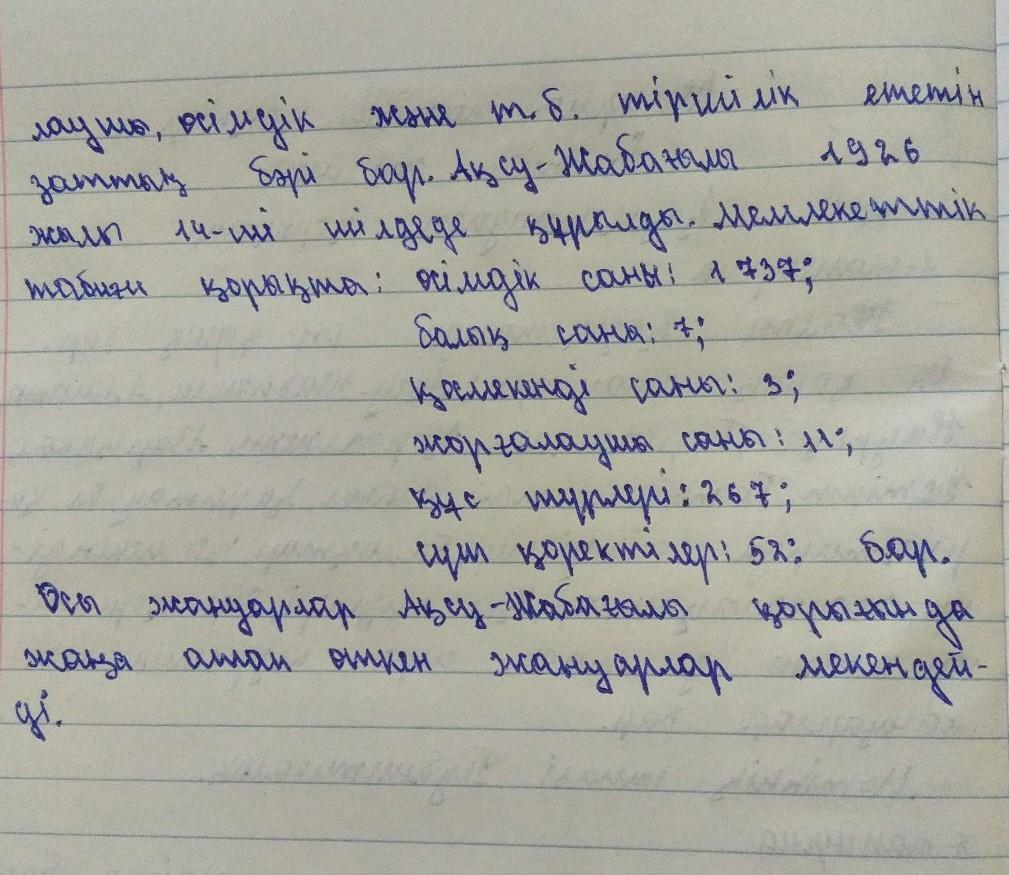 лаушы, өсімдік және т.б. тіршілік ететін
заттың бәрі бар. Ақсу-Жабағылы 1926
жылы 14-ші шілдеде құрылды. Мемлекеттік
табиғи қорықта: өсімдік саны: 1 737;
балық саны: 7;
қосмекенді саны: 3;
жорғалаушы саны: 11;
құс түрлері: 267;
сүт қоректілер: 52; бар.
Осы жануарлар Ақсу-Жабағылы қорығында
жаңа атап өткен жануарлар мекендей-
ді.